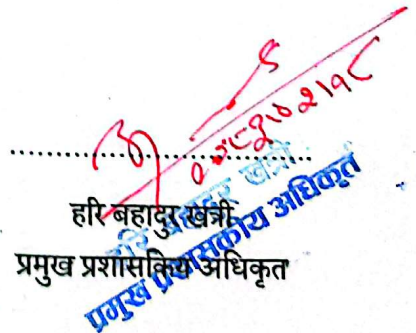 हरि बहादुर खत्री
प्रमुख प्रशासकिय अधिकृत
हरि बहादुर खत्री
प्रमुख प्रशासकीय अधिकृत